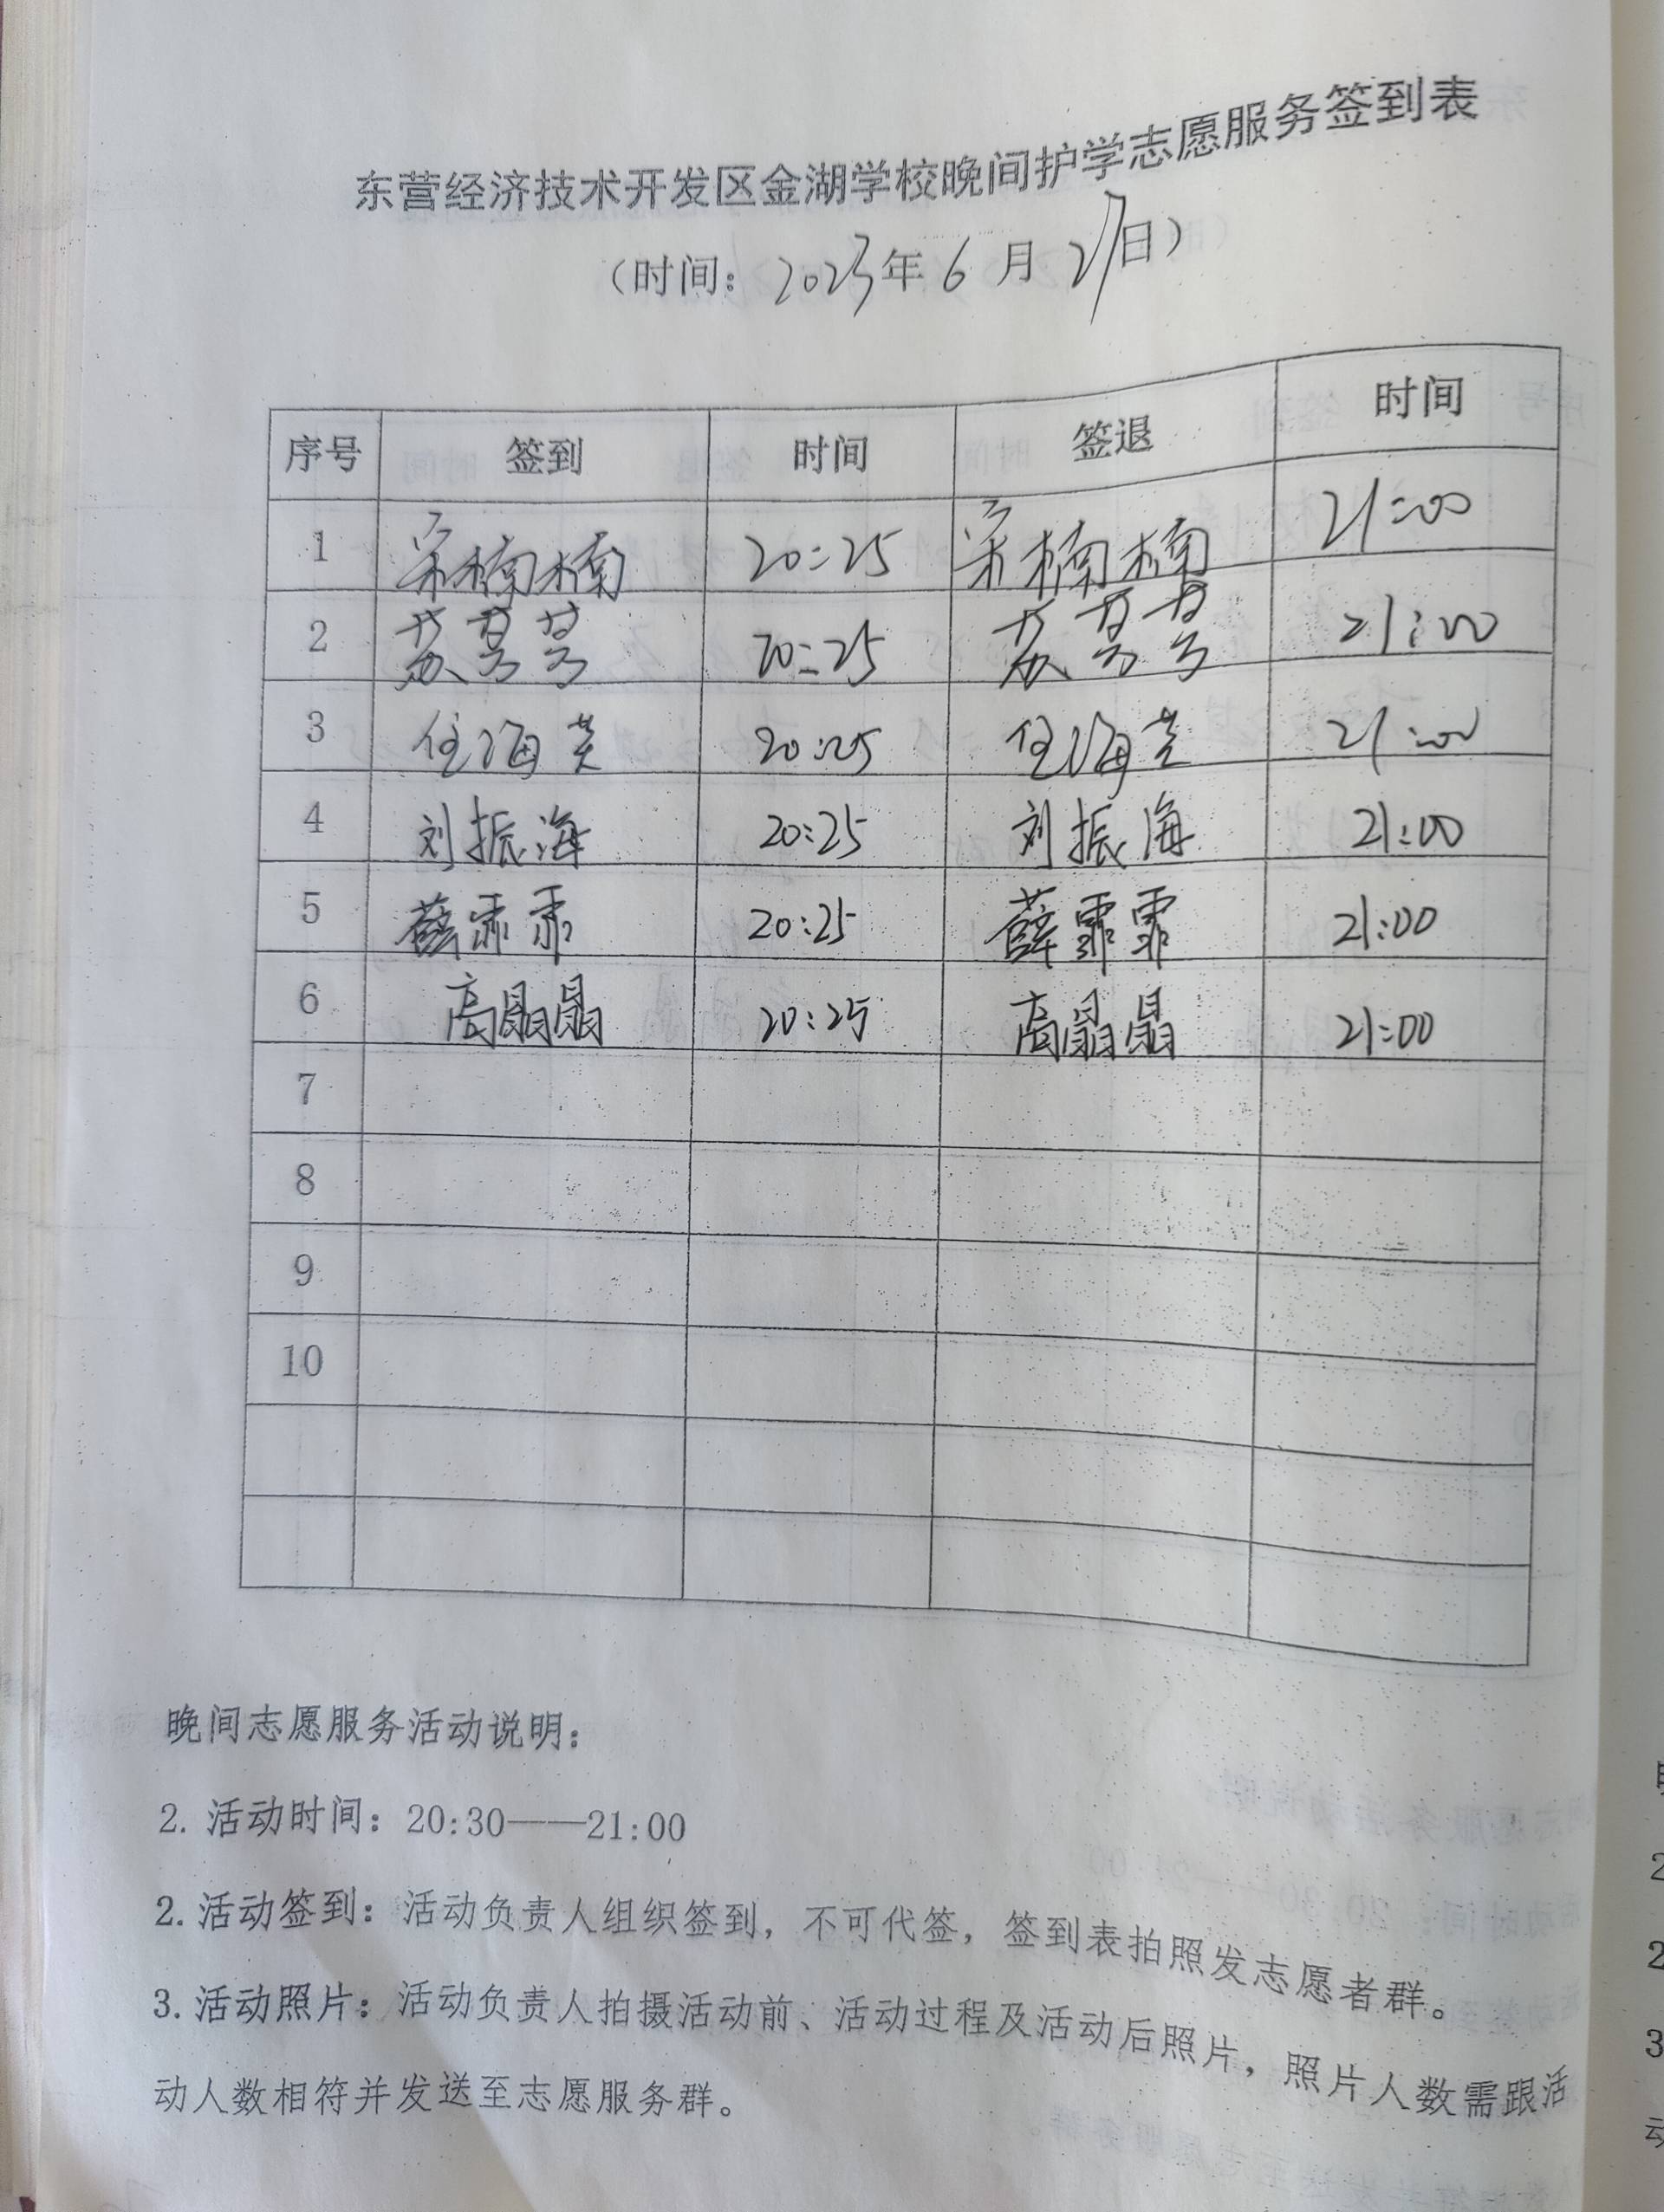 东营经济技术开发区金湖学校晚间护学志愿服务签到表
（时间：2023年6月27日）
序号 签到 时间 签退 时间
1 宋楠楠 20:25 宋楠楠 21:00
2 苏 20:25 苏 21:00
3 任海 20:25 任海 21:00
4 刘振海 20:25 刘振海 21:00
5 薛霏霏 20:25 薛霏霏 21:00
6 高晶晶 20:25 高晶晶 21:00
7
8
9
10
晚间志愿服务活动说明：
2. 活动时间：20:30——21:00
2. 活动签到：活动负责人组织签到，不可代签，签到表拍照发志愿者群。
3. 活动照片：活动负责人拍摄活动前、活动过程及活动后照片，照片人数需跟活
动人数相符并发送至志愿服务群。